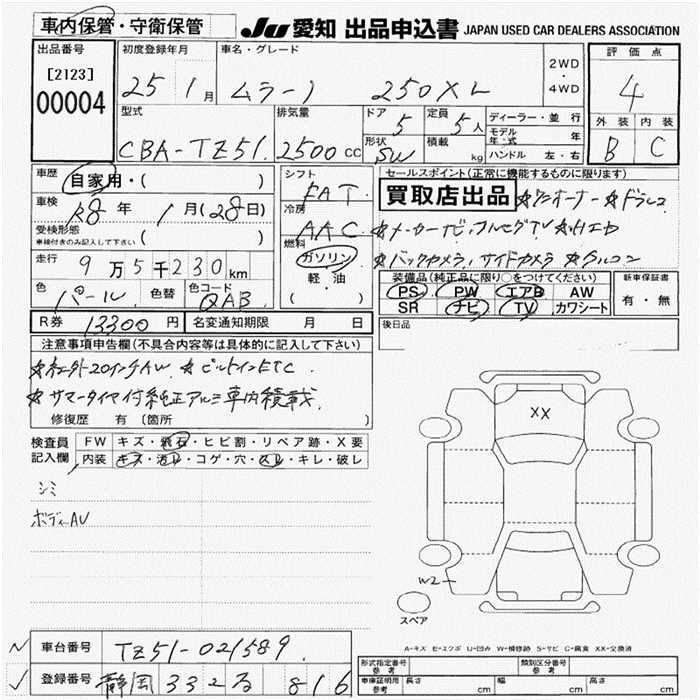 車内保管・守衛保管
JU 愛知 出品申込書 JAPAN USED CAR DEALERS ASSOCIATION
出品番号
[2123]
00004
初度登録年月
25 1月
車名・グレード
ムラーノ 250XL
2WD
・
4WD
評価点
4
外装 内装
B C
型式
CBA-TZ51
排気量
2500cc
ドア
5
定員
5人
形状
SW
積載
kg
ディーラー・並行
モデル年・式 年
ハンドル 左・右
車歴
自家用・( )
車検
R8年 1月(28日)
受検形態
車検付きのみ記入して下さい ( )
走行
9万5千230km
色
パール
色替
色コード
QAB
シフト
FAT
冷房
AAC
燃料
ガソリン
軽・油
( )
セールスポイント(正常に機能するものに限ります)
買取店出品 ☆ワンオーナー ☆ドラレコ
☆メーカーナビ,フルセグTV
☆バックカメラ,サイドカメラ ☆クルコン
装備品(純正品に限り○をつけてください)
PS PW エアB AW
SR ナビ TV カワシート
新車保証書
有・無
後日品
R券 13300円 名変通知期限 月 日
注意事項申告欄(不具合内容等は具体的に記入して下さい)
☆社外20インチAW ☆ビルトインETC
☆サマータイヤ付純正アルミ車内積載
修復歴 有 〔箇所 〕
検査員記入欄
FW キズ・飛石・ヒビ割・リペア跡・X要
内装 キズ・汚レ・コゲ・穴・スレ・キレ・破レ
シミ
ボディAU
XX
W2
スペア
A-キズ E-エクボ U-凹み W-補修跡 S-サビ C-腐食 XX-交換済
車台番号 TZ51-021589
登録番号 静岡 332 る 816
形式指定番号 参考
類別区分番号 参考
車庫証明用 参考 長さ cm 幅 cm 高さ cm